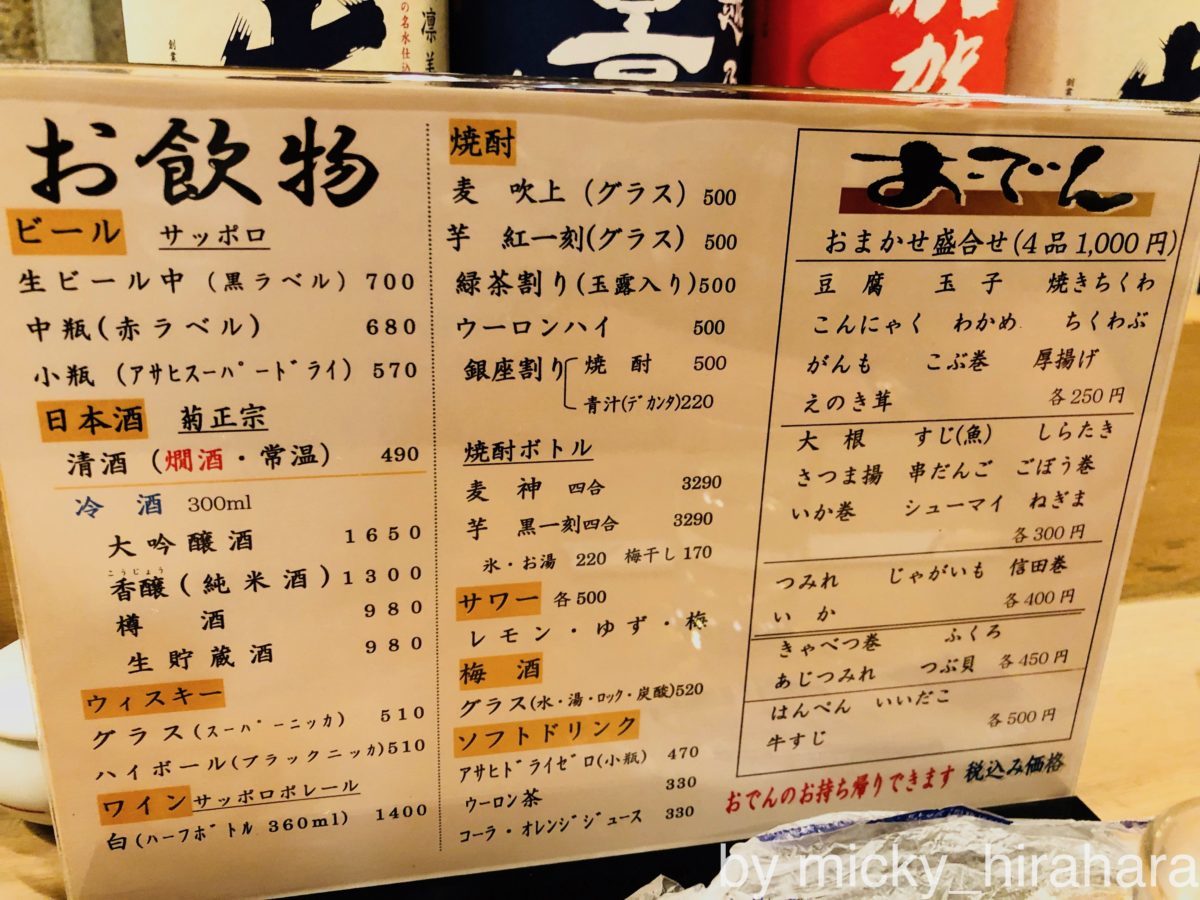 の名水仕込
凛美
創業
創業
お飲物
ビール サッポロ
生ビール中 (黒ラベル) 700
中瓶(赤ラベル) 680
小瓶 (アサヒスーパードライ) 570
日本酒 菊正宗
清酒 (燗酒・常温) 490
冷 酒 300ml
大吟醸酒 1650
こうじょう
香醸(純米酒) 1300
樽 酒 980
生貯蔵酒 980
ウィスキー
グラス(スーパーニッカ) 510
ハイボール(ブラックニッカ)510
ワイン サッポロポレール
白(ハーフボトル 360ml) 1400
焼酎
麦 吹上 (グラス) 500
芋 紅一刻(グラス) 500
緑茶割り(玉露入り)500
ウーロンハイ 500
銀座割り 焼 酎 500
青汁(デカンタ)220
焼酎ボトル
麦 神 四合 3290
芋 黒一刻四合 3290
氷・お湯 220 梅干し170
サワー 各500
レモン・ゆず・梅
梅 酒
グラス(水・湯・ロック・炭酸)520
ソフトドリンク
アサヒドライゼロ(小瓶) 470
ウーロン茶 330
コーラ・オレンジジュース 330
おでん
おまかせ盛合せ(4品1,000円)
豆 腐 玉 子 焼きちくわ
こんにゃく わかめ ちくわぶ
がんも こぶ巻 厚揚げ
えのき茸 各250円
大 根 すじ(魚) しらたき
さつま揚 串だんご ごぼう巻
いか巻 シューマイ ねぎま
各300円
つみれ じゃがいも 信田巻
い か 各400円
きゃべつ巻 ふくろ
あじつみれ つぶ貝 各450円
はんぺん いいだこ
牛すじ 各500円
おでんのお持ち帰りできます 税込み価格
by micky_hirahara